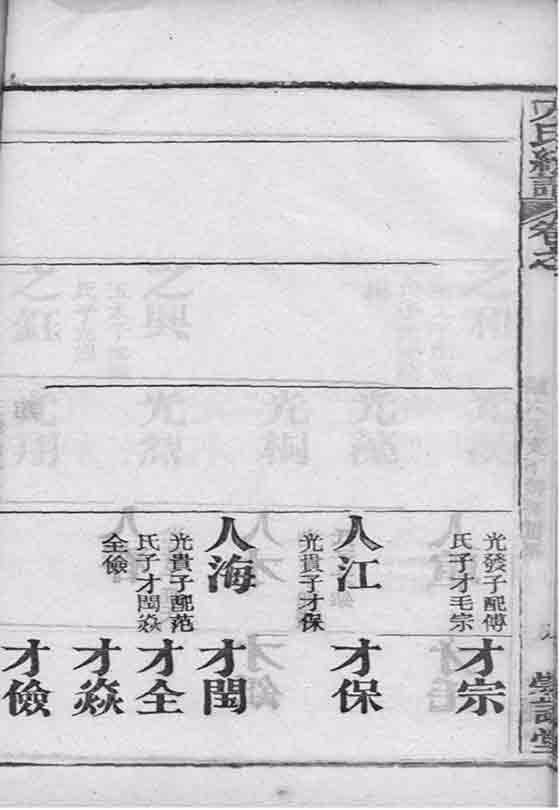 氏
卷之
堂
光發子配傅
氏子才毛宗
才宗
人江
光貴子才保
才保
人海
光貴子配范
氏子才閏焱
全儉
才閏
才全
才焱
才儉